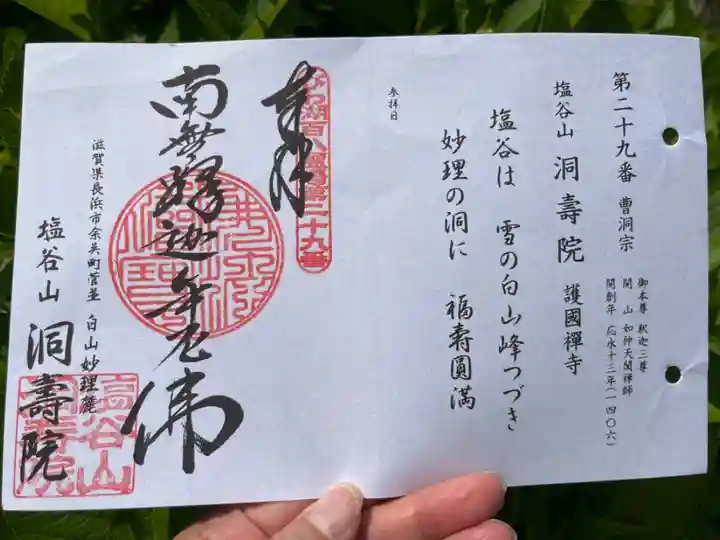 第二十九番 曹洞宗
御本尊 釈迦三尊
開山 如仲天誾禅師
開創年 応永十三年(一四〇六)
塩谷山 洞壽院 護國禪寺
塩谷は 雪の白山峰つづき
妙理の洞に 福壽圓滿
参拝日
奉拝
びわ湖百八霊場第二十九番
南無釋迦牟尼佛
滋賀県長浜市余呉町菅並 白山妙理麓
塩谷山 洞壽院
塩谷山
洞壽院